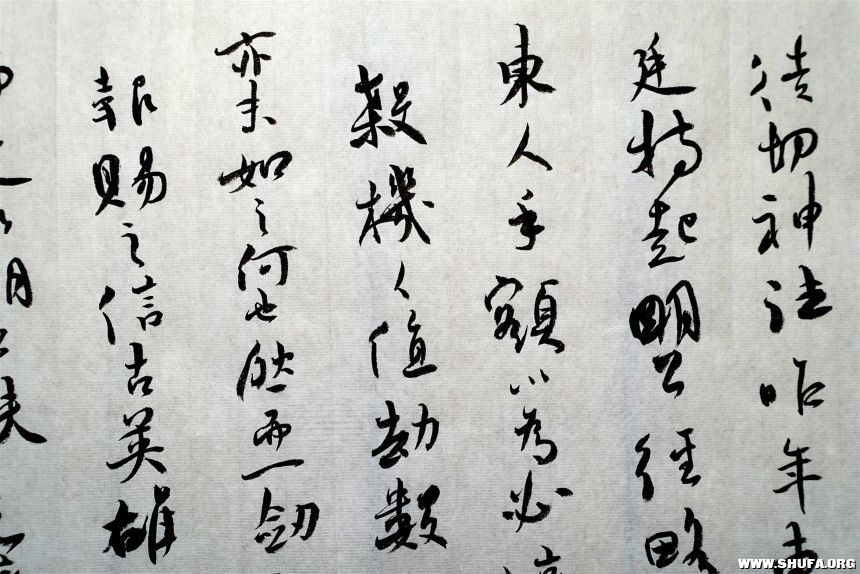 徒切神往昨年古
廷特起明公经略
東人手額以為必
殺機人值劫數
亦末如之何也然要一劍
報賜之信古英雄
明公
WWW.SHUFA.ORG